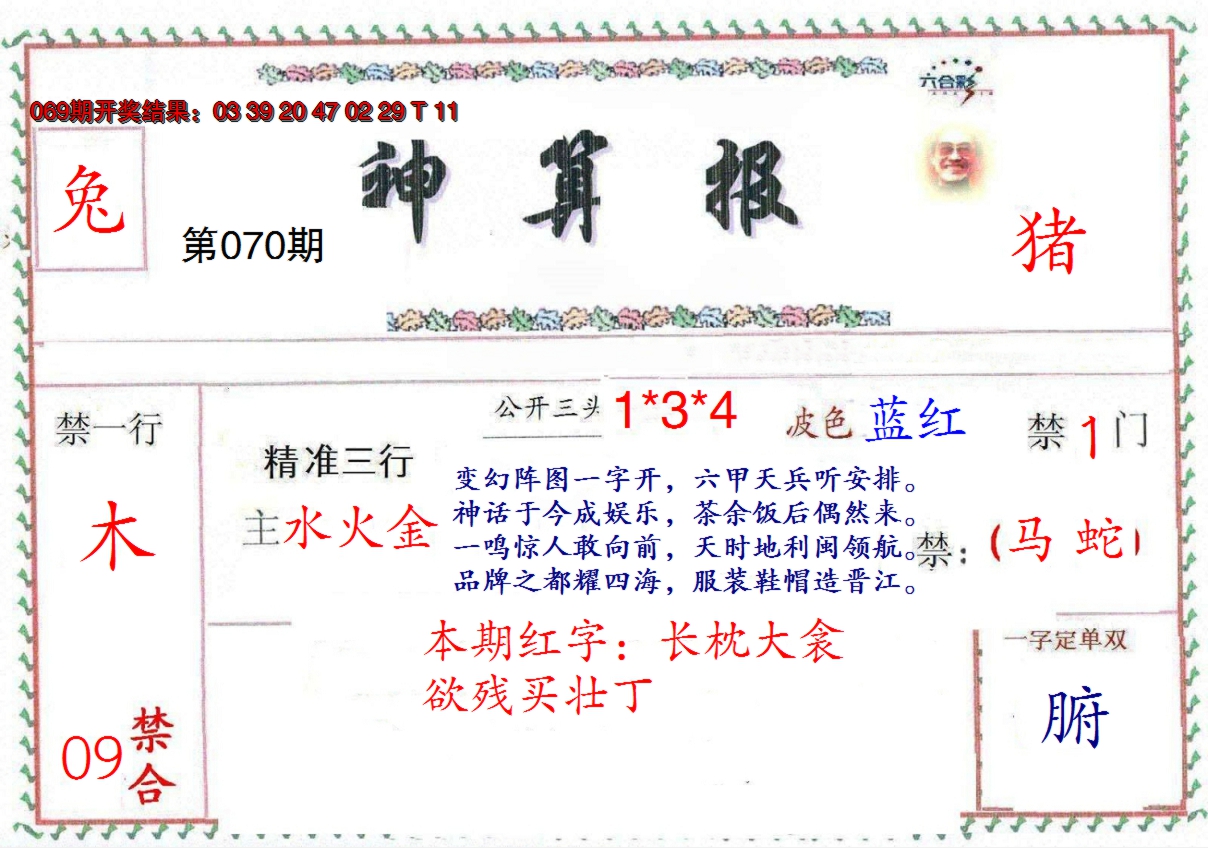 六合彩
069期开奖结果：03 39 20 47 02 29 T 11
神算报
兔
第070期
猪
公开三头 1*3*4
波色 蓝红
禁1门
禁一行
木
精准三行
主水火金
变幻阵图一字开，六甲天兵听安排。
神话于今成娱乐，茶余饭后偶然来。
一鸣惊人敢向前，天时地利闽领航。
品牌之都耀四海，服装鞋帽造晋江。
禁：（马 蛇）
本期红字：长枕大衾
欲残买壮丁
一字定单双
腑
09禁合